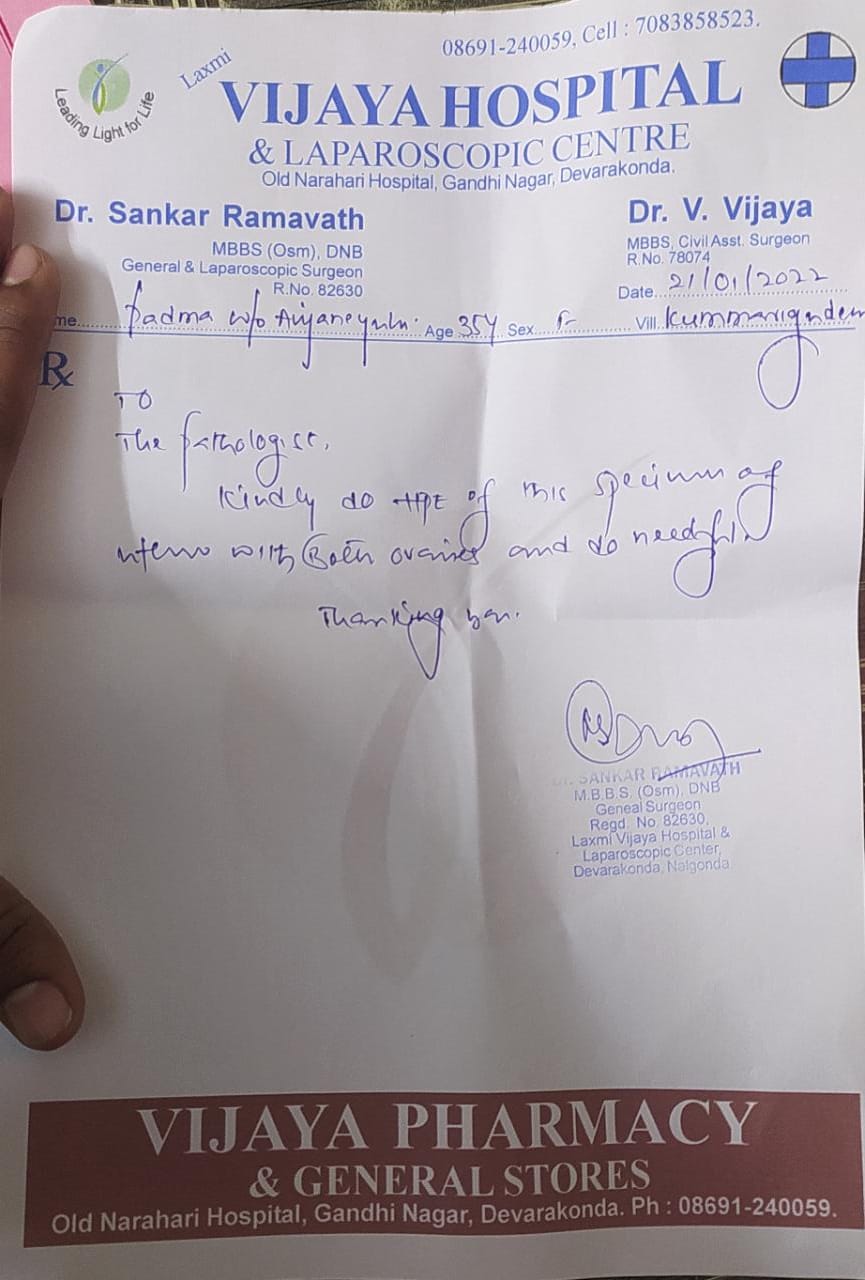 08691-240059, Cell : 7083858523.
Leading Light for Life
Laxmi
VIJAYA HOSPITAL
& LAPAROSCOPIC CENTRE
Old Narahari Hospital, Gandhi Nagar, Devarakonda.
Dr. Sankar Ramavath
MBBS (Osm), DNB
General & Laparoscopic Surgeon
R.No. 82630
Dr. V. Vijaya
MBBS, Civil Asst. Surgeon
R.No. 78074
Date 21/01/2022
me Padma w/o Age 35Y Sex F Vill
Rx
TO
The Pathologist,
Kindly do HPE of this specimen of
uterus with Both ovaries and do needful.
Thanking you.
DR. SANKAR RAMAVATH
M.B.B.S, (Osm), DNB
Geneal Surgeon
Regd. No. 82630,
Laxmi Vijaya Hospital &
Laparoscopic Center,
Devarakonda, Nalgonda
VIJAYA PHARMACY
& GENERAL STORES
Old Narahari Hospital, Gandhi Nagar, Devarakonda. Ph : 08691-240059.